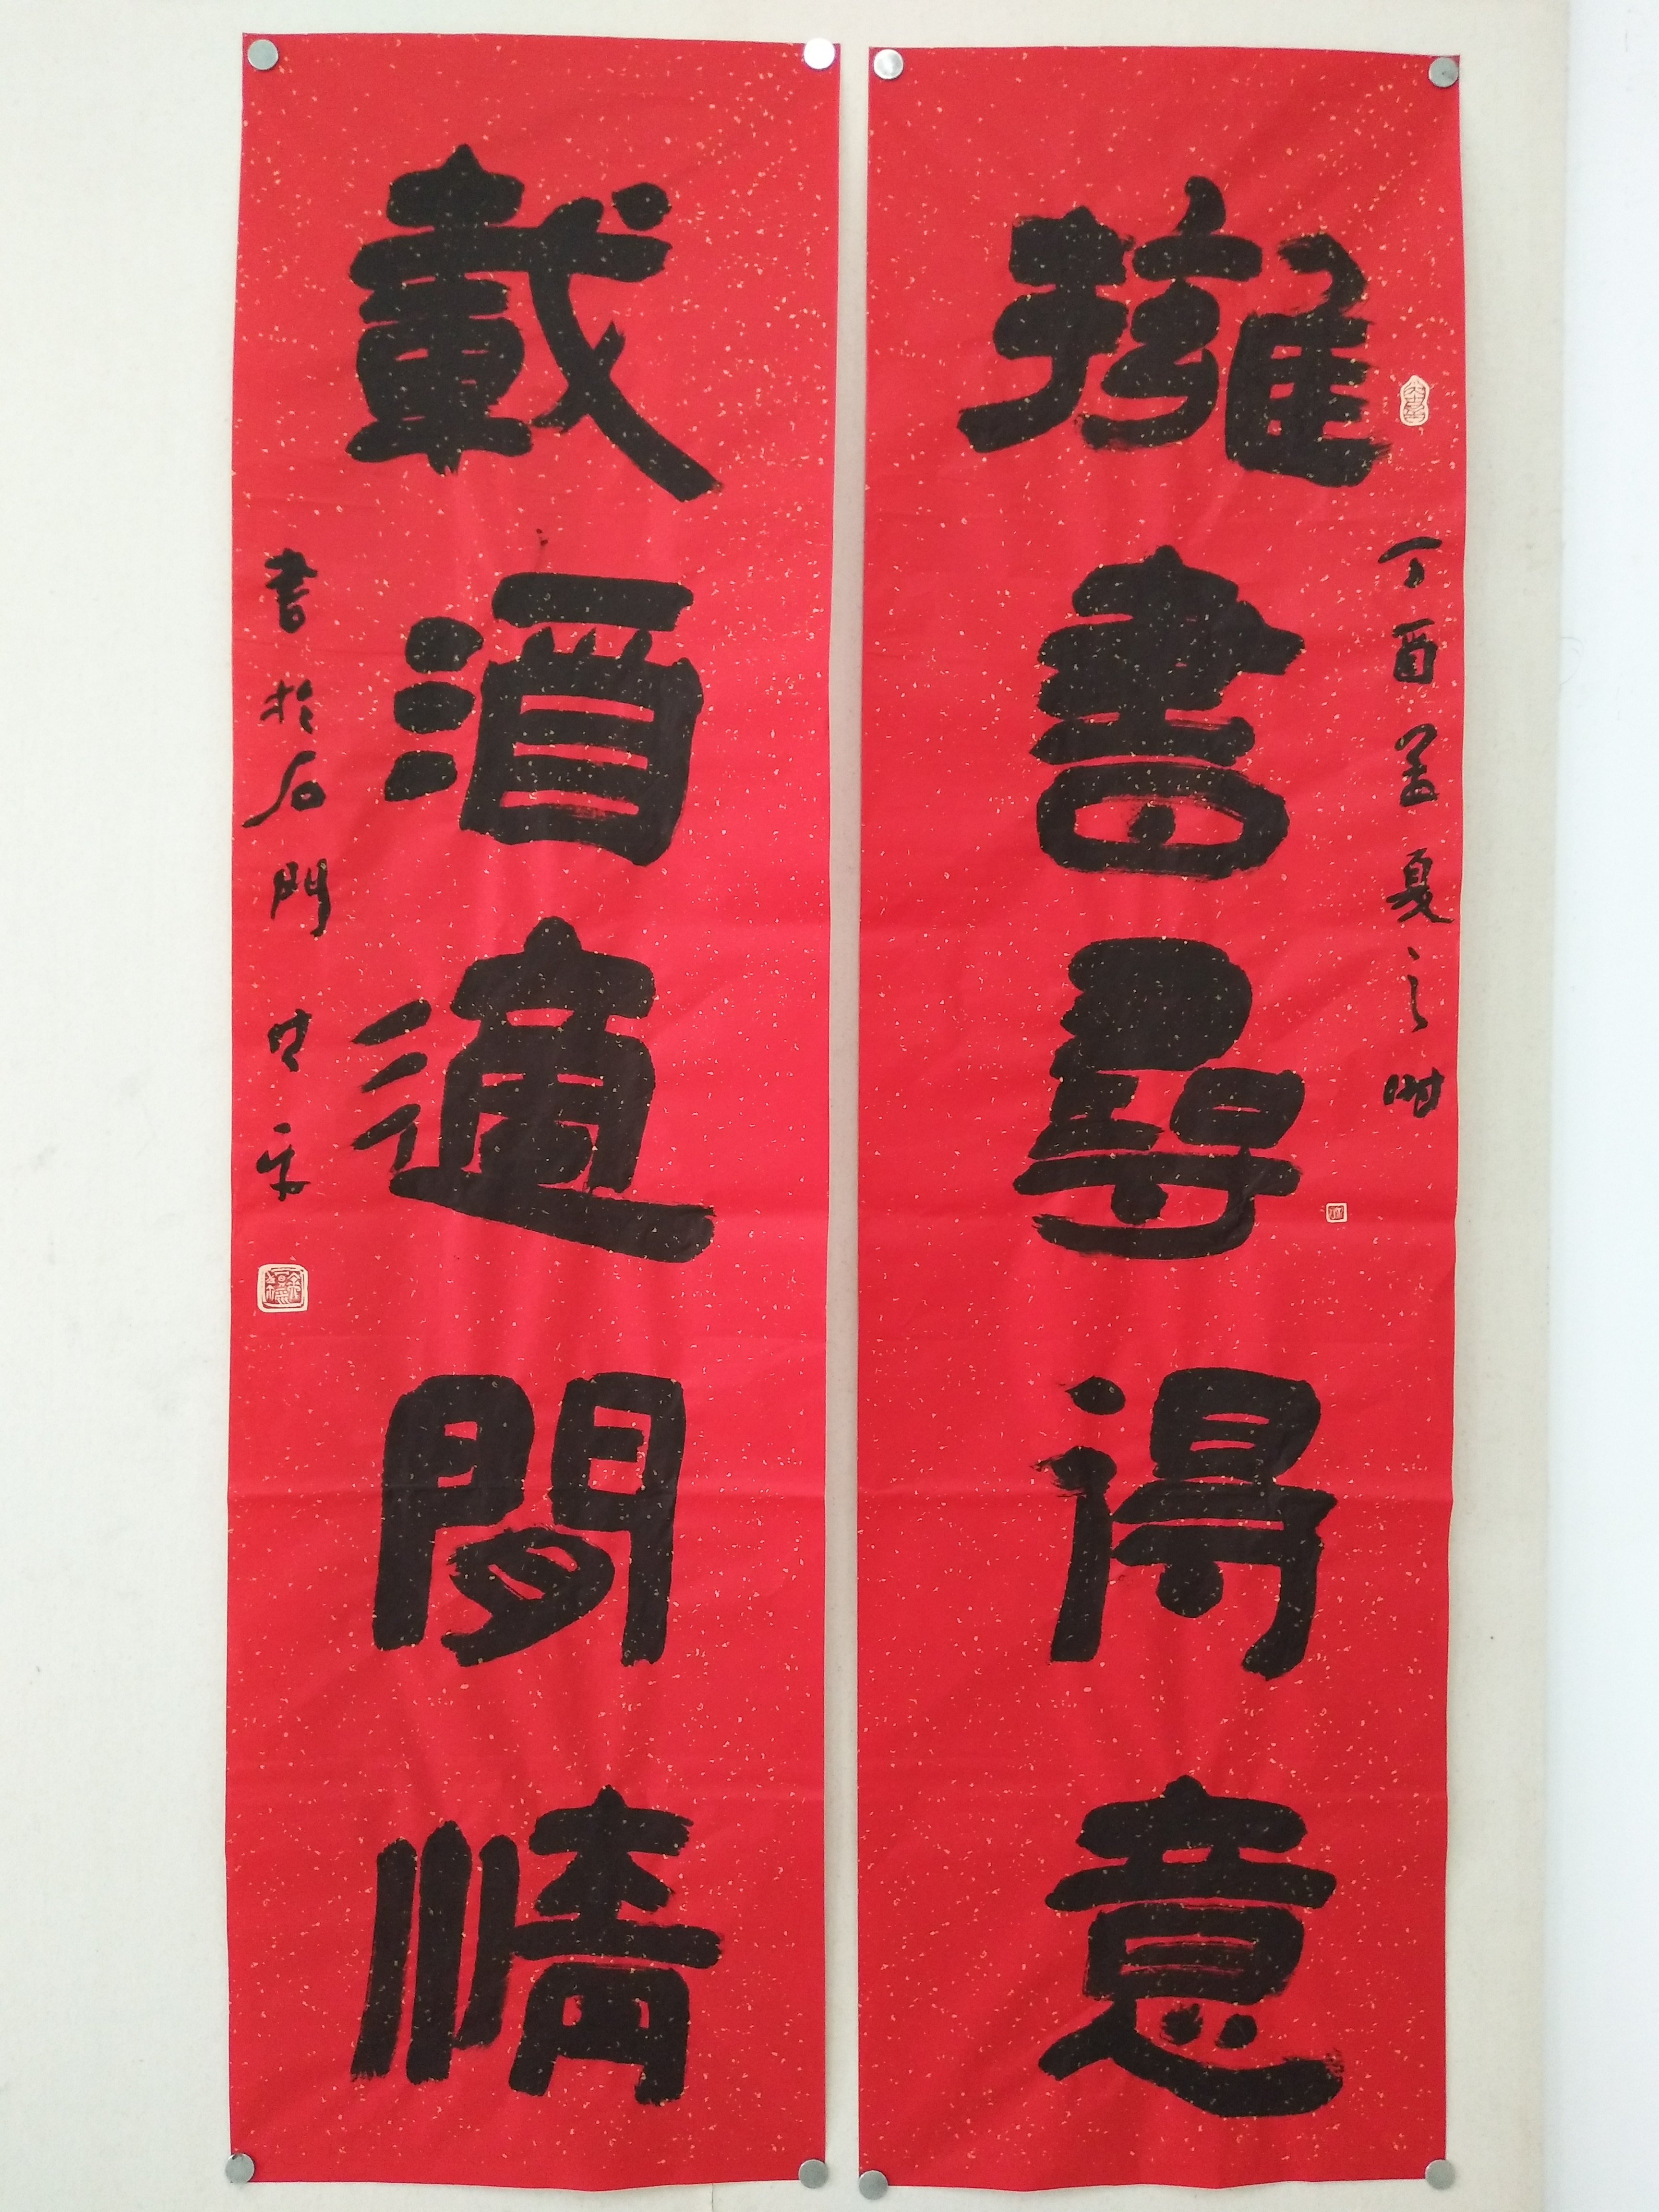 丁酉孟夏之時
擁書尋得意
載酒適閒情
書於石門